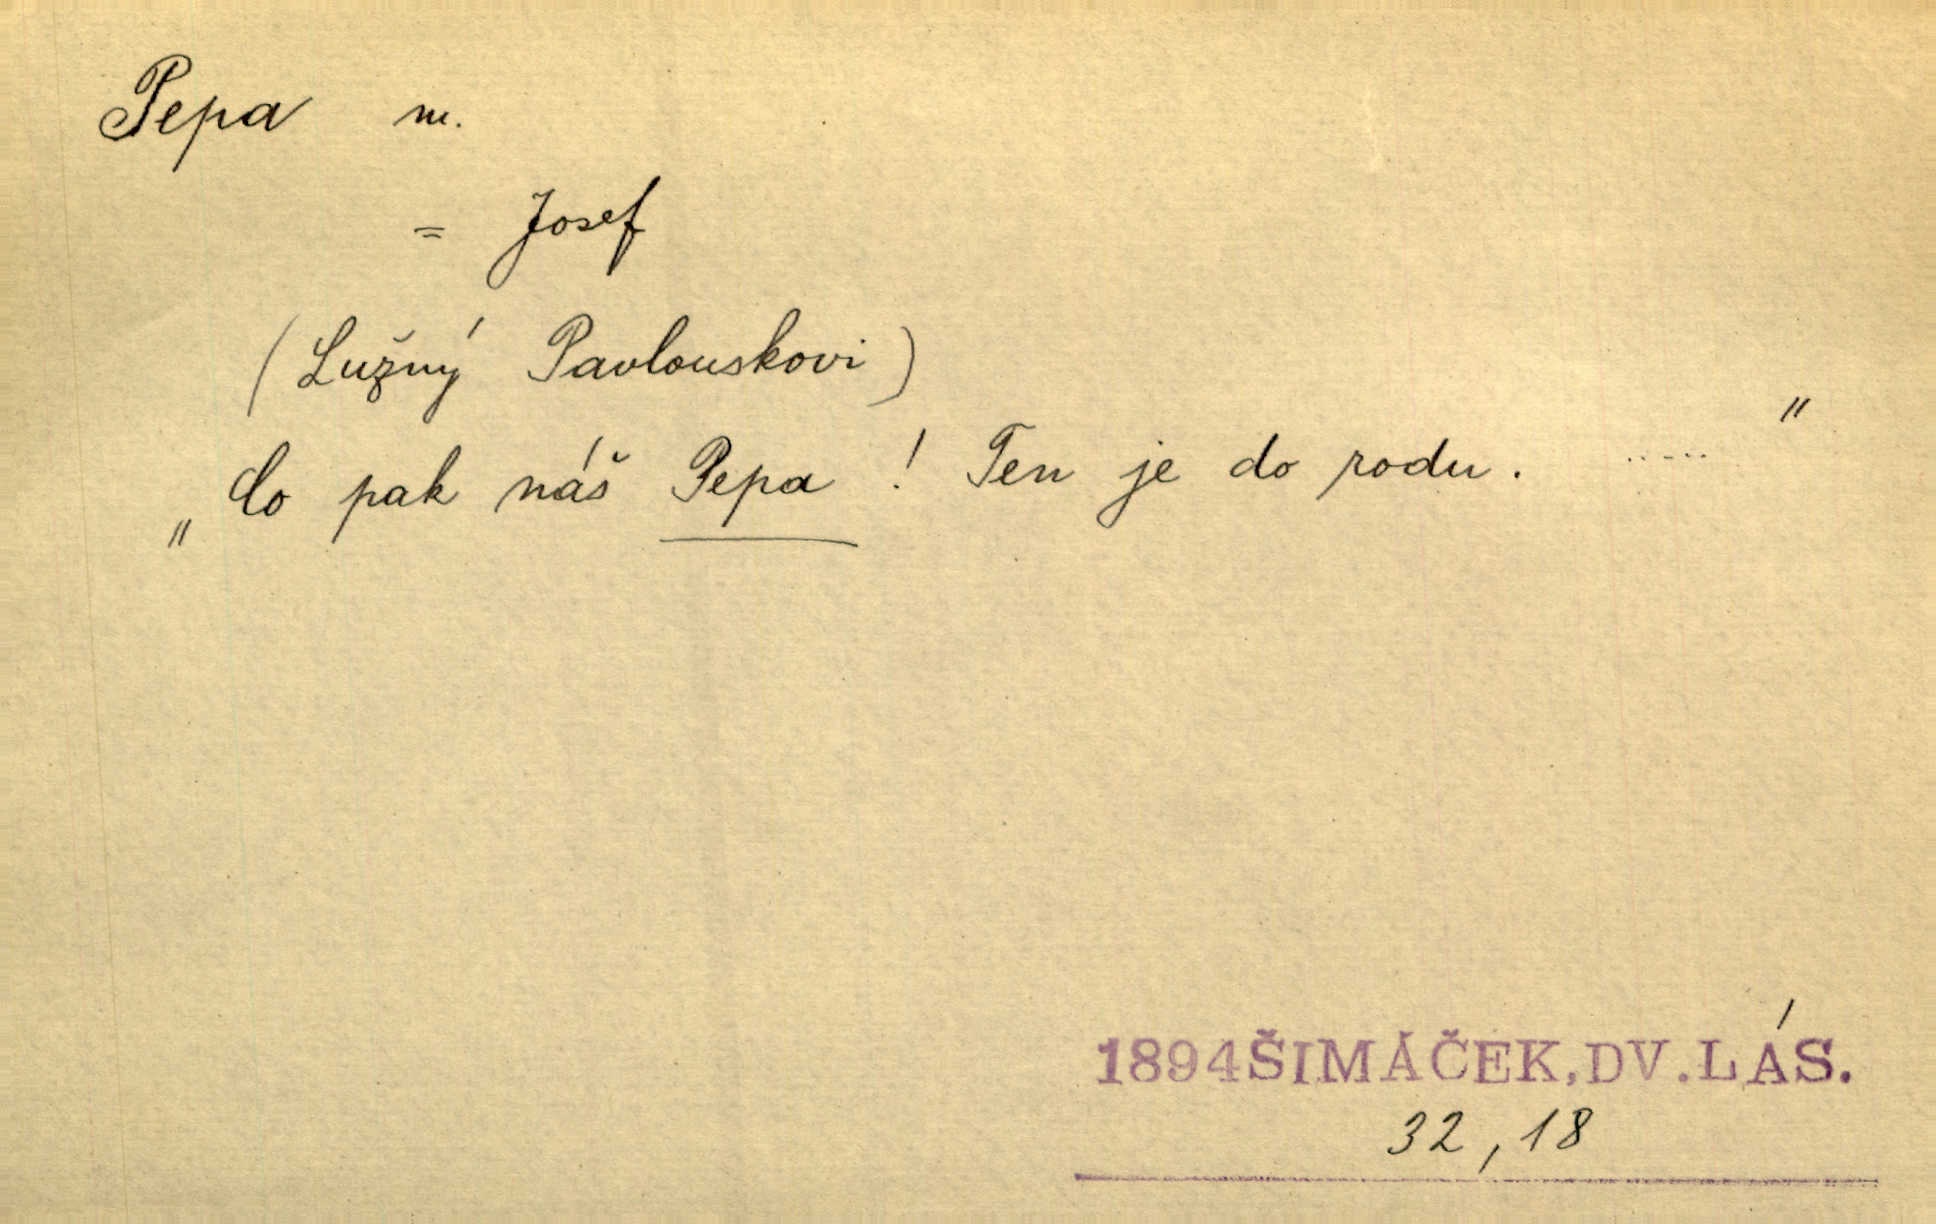 Pepa m.
= Josef
(Lužný Pavlouskovi)
„Co pak náš Pepa! Ten je do rodu. ....."
1894 ŠIMÁČEK, DV. LÁS.
32, 18